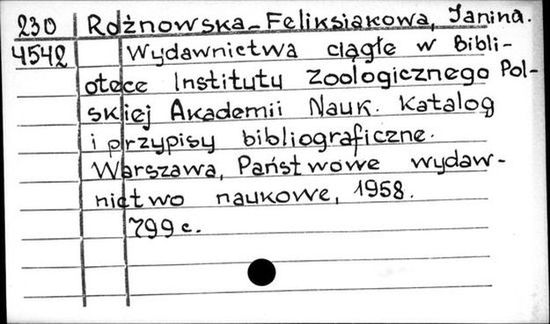 230 Rożnowska-Feliksiakowa, Janina.
4542 Wydawnictwa ciągłe w Bibli-
otece Instytutu Zoologicznego Pol-
skiej Akademii Nauk. Katalog
i przypisy bibliograficzne.
Warszawa, Państwowe wydaw-
nictwo naukowe, 1958.
799 c.